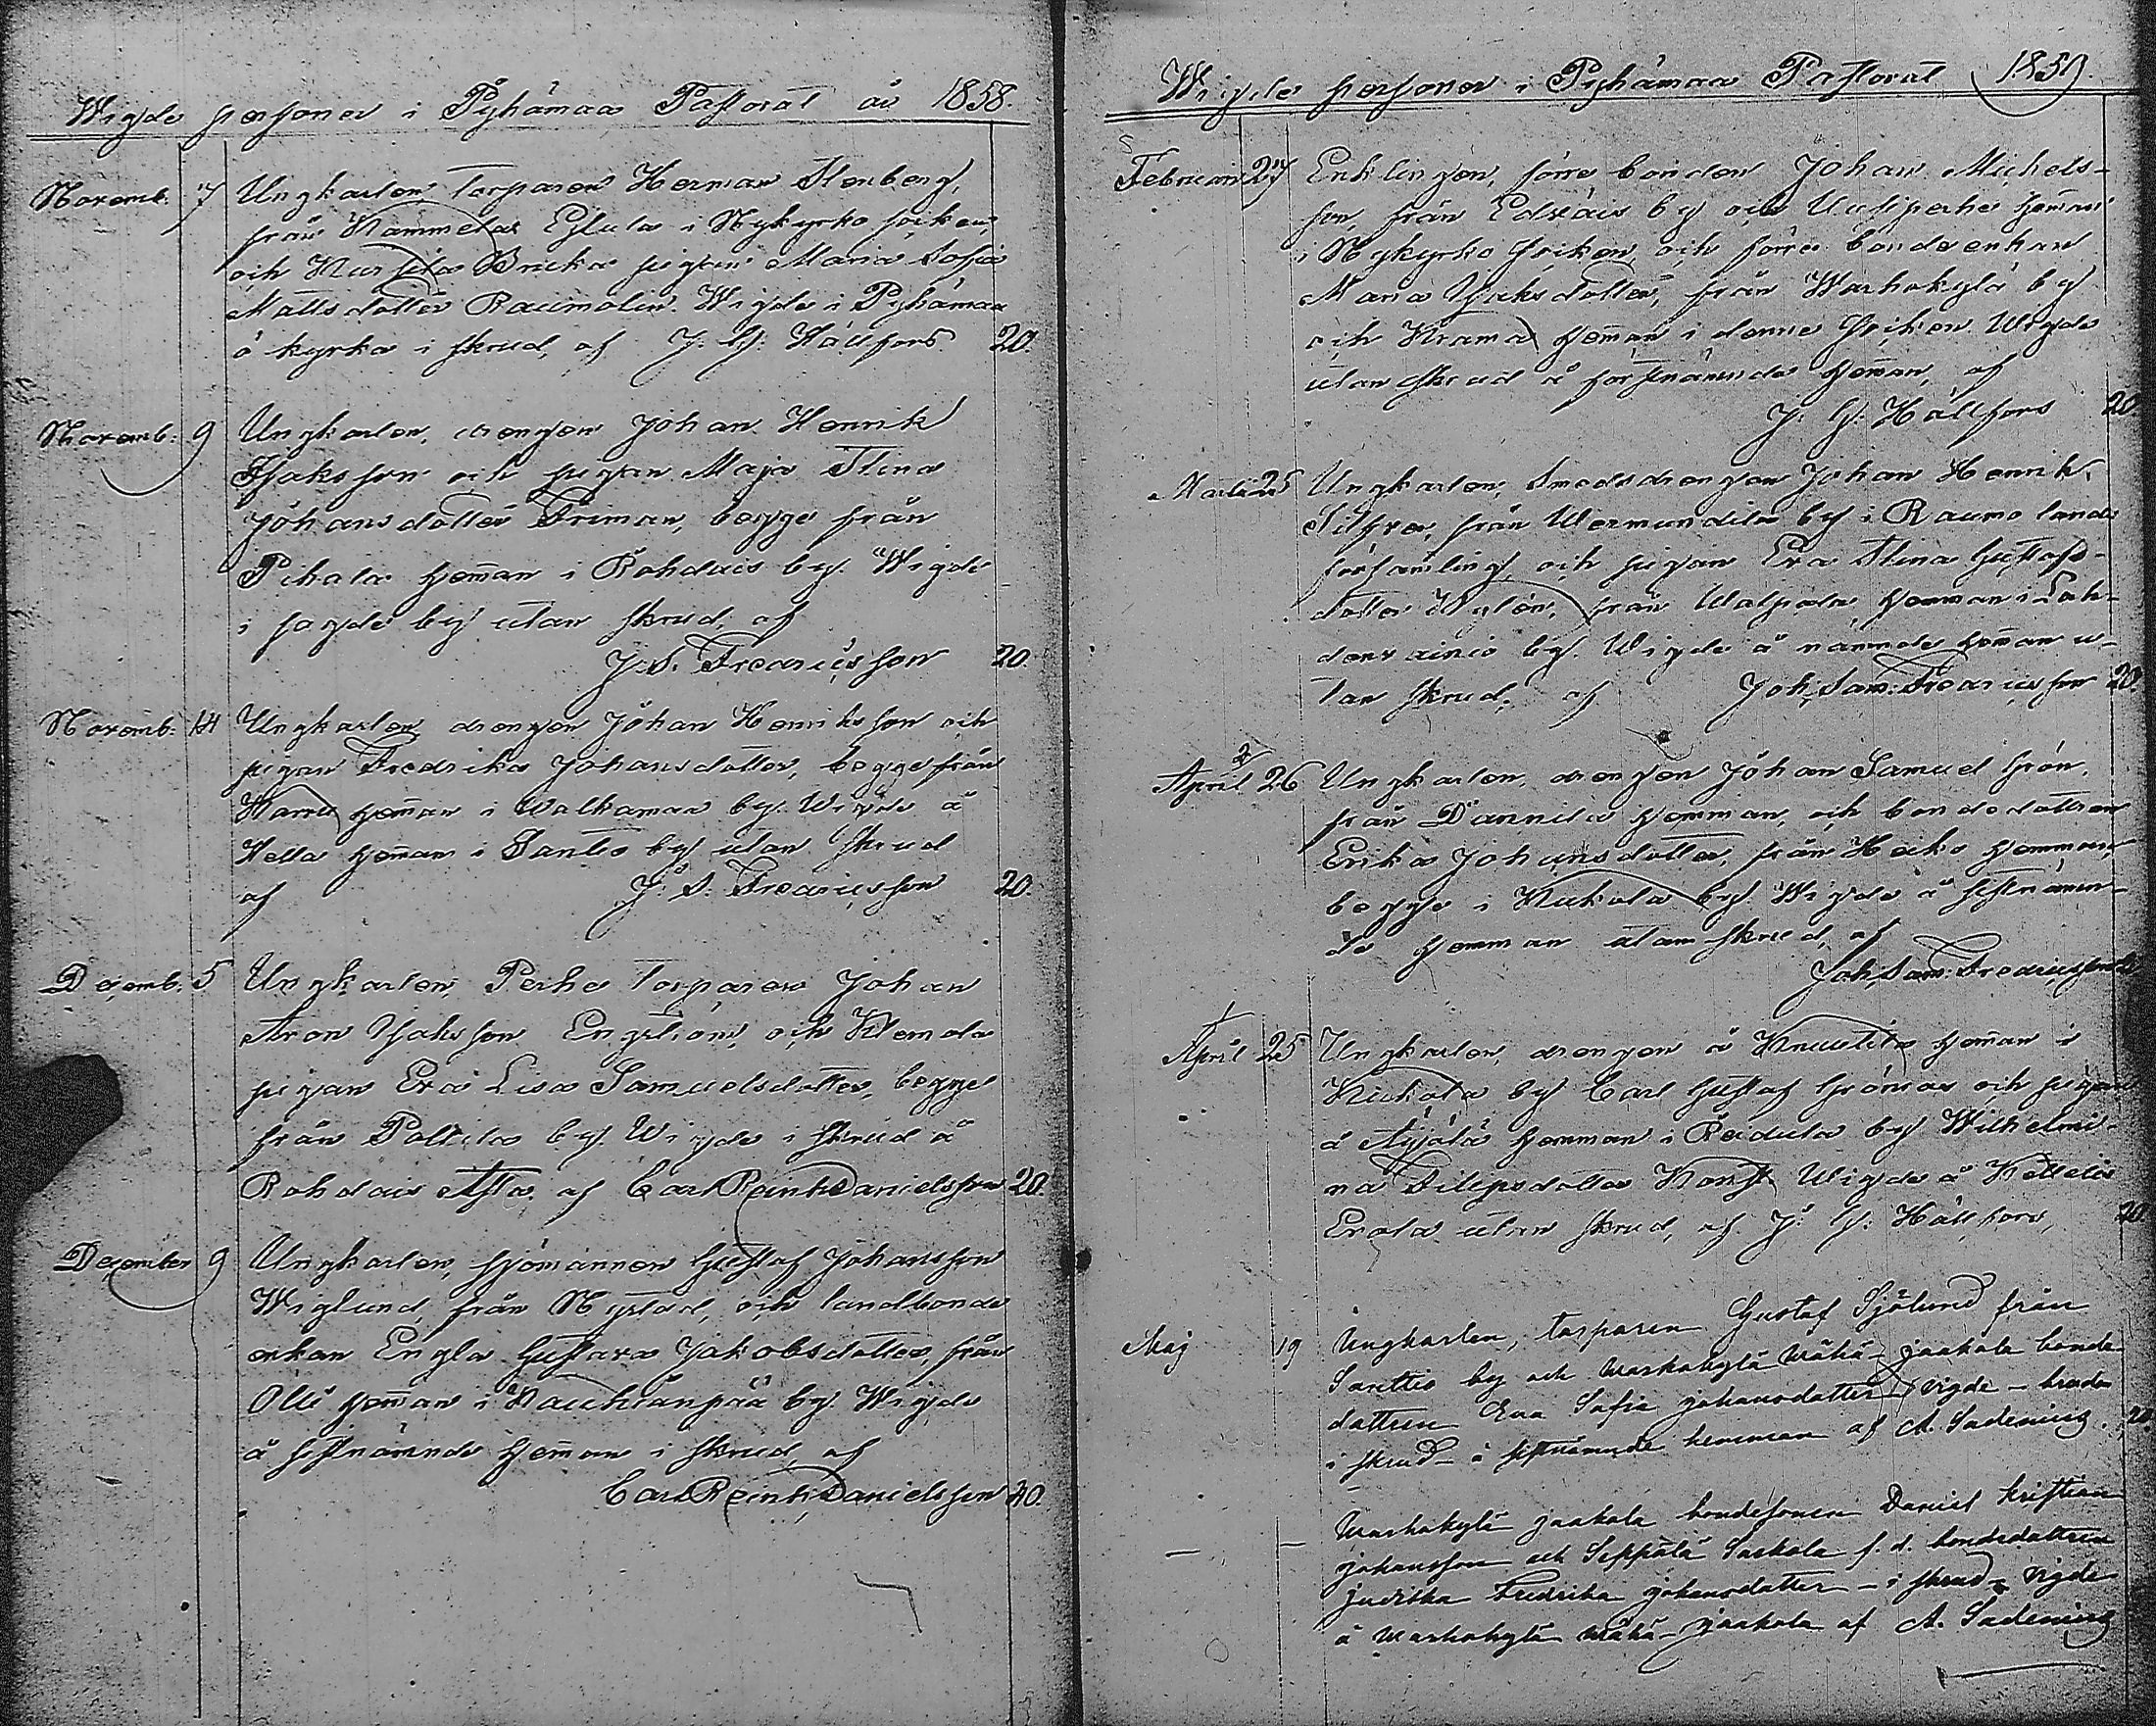 Wigde personer i Pyhämaa Pastorat år 1858.
Novemb. 7 Ungkarlen Torparen Herman Stenberg,
från Kammela Eskula i Nykyrko socken,
och Kursila Bruka pigan Maria Sofia
Mattsdotter Raumolin. Wigde i Pyhämaa
ö kyrka i skrud, af J. G. Hällfors. 20.
Novemb: 9 Ungkarlen, drengen Johan Henrik
Isaksson och pigan Maja Stina
Johansdotter Friman, begge från
Pihala heman i Rohdais by. Wigde
i sagde by utan skrud, af
J. S. Fredricsson 20.
Novemb: 14 Ungkarlen drengen Johan Henriksson och
pigan Fredrika Johansdotter, begge från
Karru heman i Walkamaa by. Wigde å
Hella heman i Santio by utan skrud
af J. S. Fredricsson 20.
Decemb. 5 Ungkarlen, Perhe Torparen Johan
Aron Isaksson Engström, och Klemola
pigan Eva Lisa Samuelsdotter, begge
från Polttila by. Wigde i skrud å
Rohdais af Carl Reinh Danielsson 20.
December 9 Ungkarlen, sjömannen Gustaf Johansson
Wiglund, från Nystad, och landbonde
enkan Engla Gustava Jakobsdotter, från
Olli heman i Kaukianpää by. Wigde
å sistnämnde heman i skrud, af
Carl Reinh Danielsson 40.
Wigde personer i Pyhämaa Pastorat 1859.
Februari 27 Enklingen, förre bonden Johan Michels-
son, från Edväis by och Uusiperhe heman
i Nykyrko socken, och förre bondeenkan
Maria Isaksdotter, från Warhokylä by
och Krama heman i denne socken. Wigde
utan skrud å förstnämnde heman, af
J. G. Hällfors 20
Marti 25 Ungkarlen, Smedsdrengen Johan Henrik
Silfver, från Wermundila by i Raumo lands
församling, och pigan Eva Stina Gustafs-
dotter Nylén, från Walpola hemman i Lah-
denvainio by. Wigde å nämnde heman u-
tan skrud, af Joh. Sam: Fredricsson 20
April 26 Ungkarlen, drengen Johan Samuel Grön,
från Dannila hemman, och bondedottren
Erika Johansdotter, från Heiko hemman,
begge i Kukola by. Wigde å sistnämn-
de hemman utan skrud, af
Joh. Sam: Fredricsson 20
April 25 Ungkarlen, drengen å Knuutila heman i
Kukola by Carl Gustaf Grönroos och pigan
å Äyälä hemman i Reidula by Wilhelmi-
na Filipsdotter Wigde å Kettelis
Erola utan skrud, af J. G. Hällfors, 20
Maj 19 Ungkarlen, torparen Gustaf Sjölund från
Santtio by och Warhokylä Wähä-Jaakola bonde
dottren Eva Sofia Johansdotter, Vigde – brudn
i skrud – å sistnämnde hemman af A. Sadenius. 20
– – Warhokylä Jaakola bondesonen Daniel Kristian
Johansson och Seppälä Saskola f. d. bondedottren
Juditha Fredrika Johansdotter – i skrud – Vigde
å Warhokylä Wähä-Jaakola af A. Sadenius